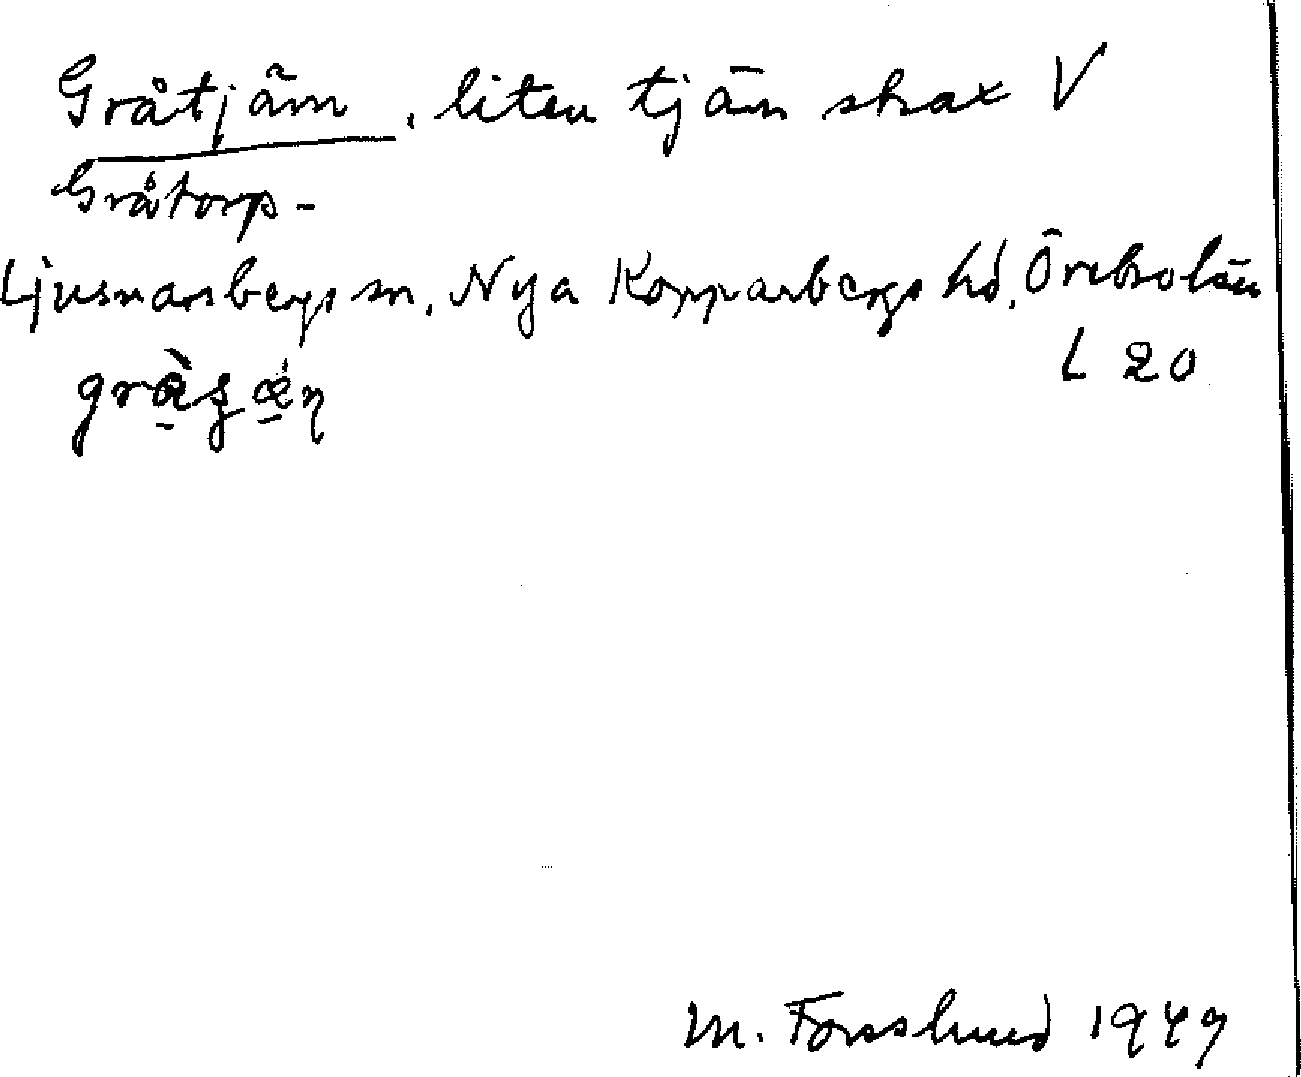 Gråtjärn, liten tjärn strax V
Gråtorp -
Ljusnarsbergs sn, Nya Kopparbergs hd, Örebro län
L 20
M. Forsslund 1949